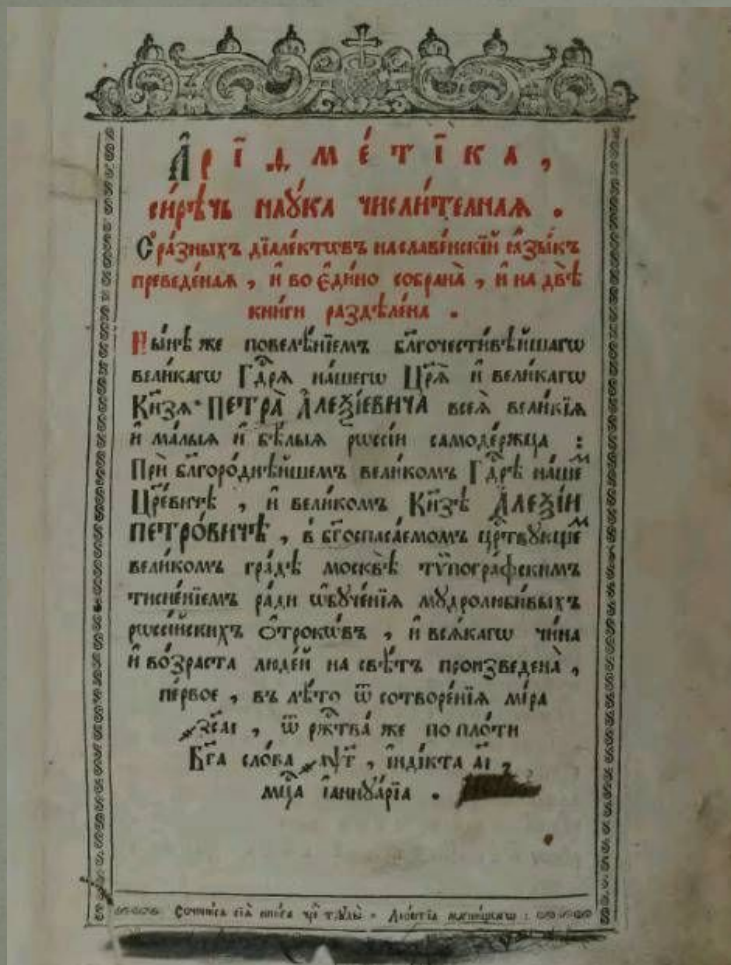 А҆ріѳме́тіка,
си́рѣчь наꙋ́ка числи́телная.
С̾ ра́зныхъ діале́ктѡвъ на славе́нскїй ꙗ҆зы́къ
преведе́ная, и҆ во є҆ди́но собрана̀, и҆ на двѣ̀
кни́ги раздѣле́на.
Ны́нѣ же повелѣ́нїемъ бл҃гочести́вѣйшагѡ
вели́кагѡ Гдⷭ҇рѧ на́шегѡ Цр҃ѧ̀ и҆ вели́кагѡ
Кн҃зѧ ПЕТРА̀ А҆ЛЕѮІ́ЕВИЧА всеѧ̀ вели́кїѧ
и҆ ма́лыѧ и҆ бѣ́лыѧ рѡссі́и самоде́ржца :
Прѝ бл҃горо́днѣйшемъ вели́комъ Гдⷭ҇рѣ на́шеⷨ
Цр҃е́вичѣ, и҆ вели́комъ Кн҃зѣ А҆ЛЕѮІ́И
ПЕТРО́ВИЧѢ, в̾ бг҃оспаса́емомъ црⷭ҇твꙋющеⷨ
вели́комъ гра́дѣ москвѣ̀ тѷпогра́фскимъ
тисне́нїемъ ра́ди ѡ҆бꙋче́нїѧ мꙋдролюби́выхъ
рѡссі́йскихъ ѻ҆́трокѡвъ, и҆ всѧ́кагѡ чи́на
и҆ во́зраста люде́й на свѣ́тъ произведена̀,
пе́рвое, въ лѣ́то ѿ сотворе́нїѧ мі́ра
҂зс҃аі, ѿ ржⷭ҇тва́ же по пло́ти
Бг҃а сло́ва ҂аѱ҃г, і҆ндї́кта а҃і,
мцⷭ҇а і҆аннꙋа́рїа.
Сочини́сѧ сїѧ̀ кни́га чре́з трꙋды̀ Лео́нтїа магни́цкагѡ :